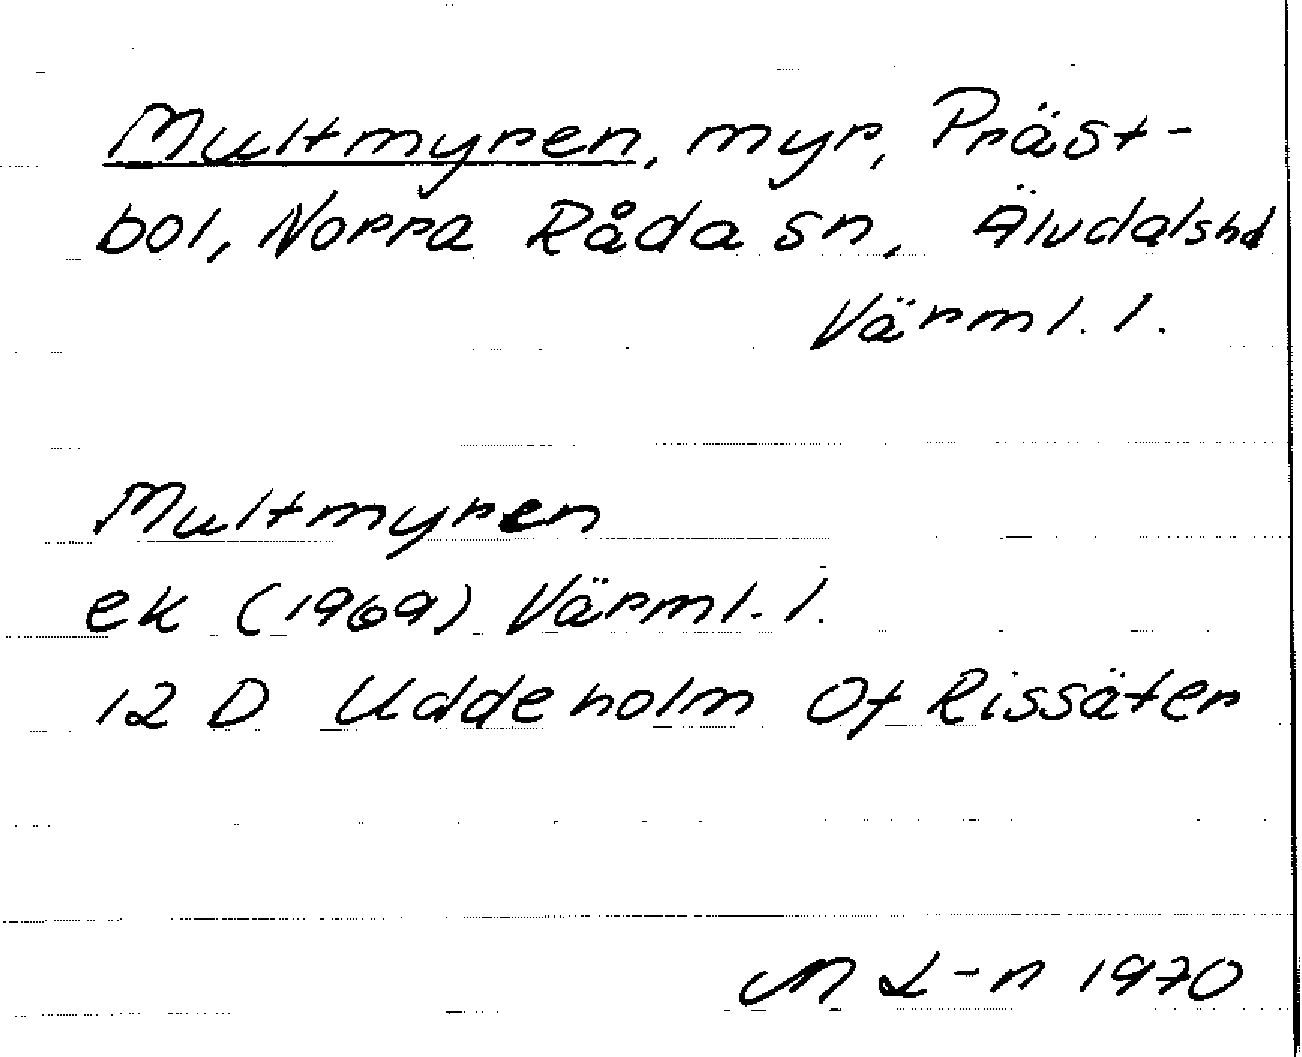 Multmyren, myr, Präst-
bol, Norra Råda sn, Älvdalshd
Värml. l.
Multmyren
ek (1969) Värml. l.
12 D Uddeholm Of Rissäter
M L-n 1970